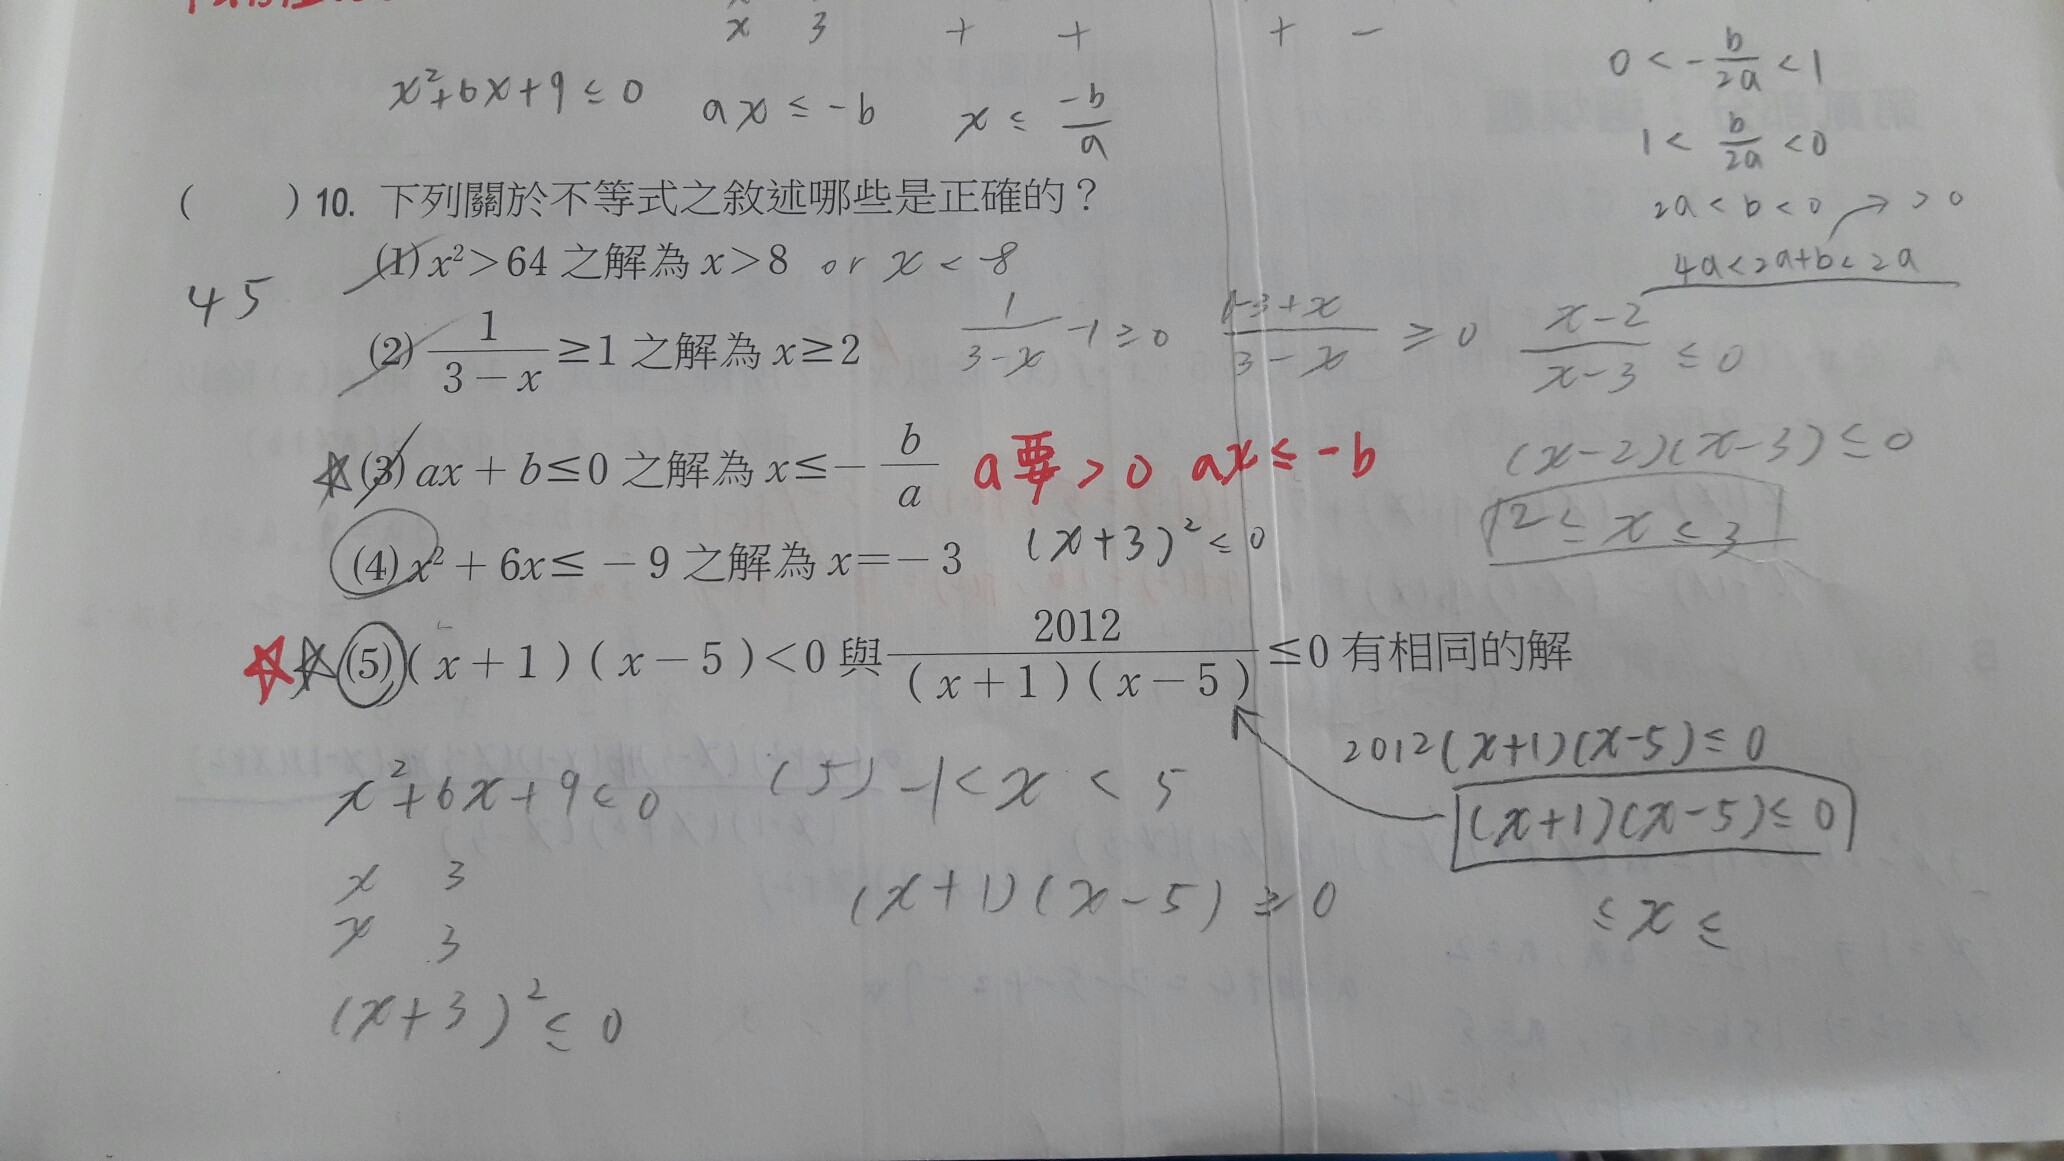 x 3 + + + −
x²+6x+9 ≤ 0
ax ≤ -b
x ≤ -b/a
0 < -b/2a < 1
1 < b/2a < 0
2a < b < 0 → > 0
4a < 2a+b < 2a
( ) 10. 下列關於不等式之敘述哪些是正確的？
45
(1) x²>64 之解為 x>8 or x < -8
(2) 1/(3－x) ≥1 之解為 x≥2
1/(3-x) -1 ≥ 0
(1-3+x)/(3-x) ≥ 0
(x-2)/(x-3) ≤ 0
(x-2)(x-3) ≤ 0
2 ≤ x ≤ 3
☆(3) ax＋b≤0 之解為 x≤－b/a a要 > 0 ax ≤ -b
(4) x²＋6x≤－9 之解為 x=－3 (x+3)² ≤ 0
☆☆(5) (x＋1)(x－5)<0 與 2012/((x＋1)(x－5)) ≤0 有相同的解
2012(x+1)(x-5) ≤ 0
(x+1)(x-5) ≤ 0
≤ x ≤
x²+6x+9 ≤ 0
(5) -1 < x < 5
x 3
x 3
(x+1)(x-5) ≥ 0
(x+3)² ≤ 0